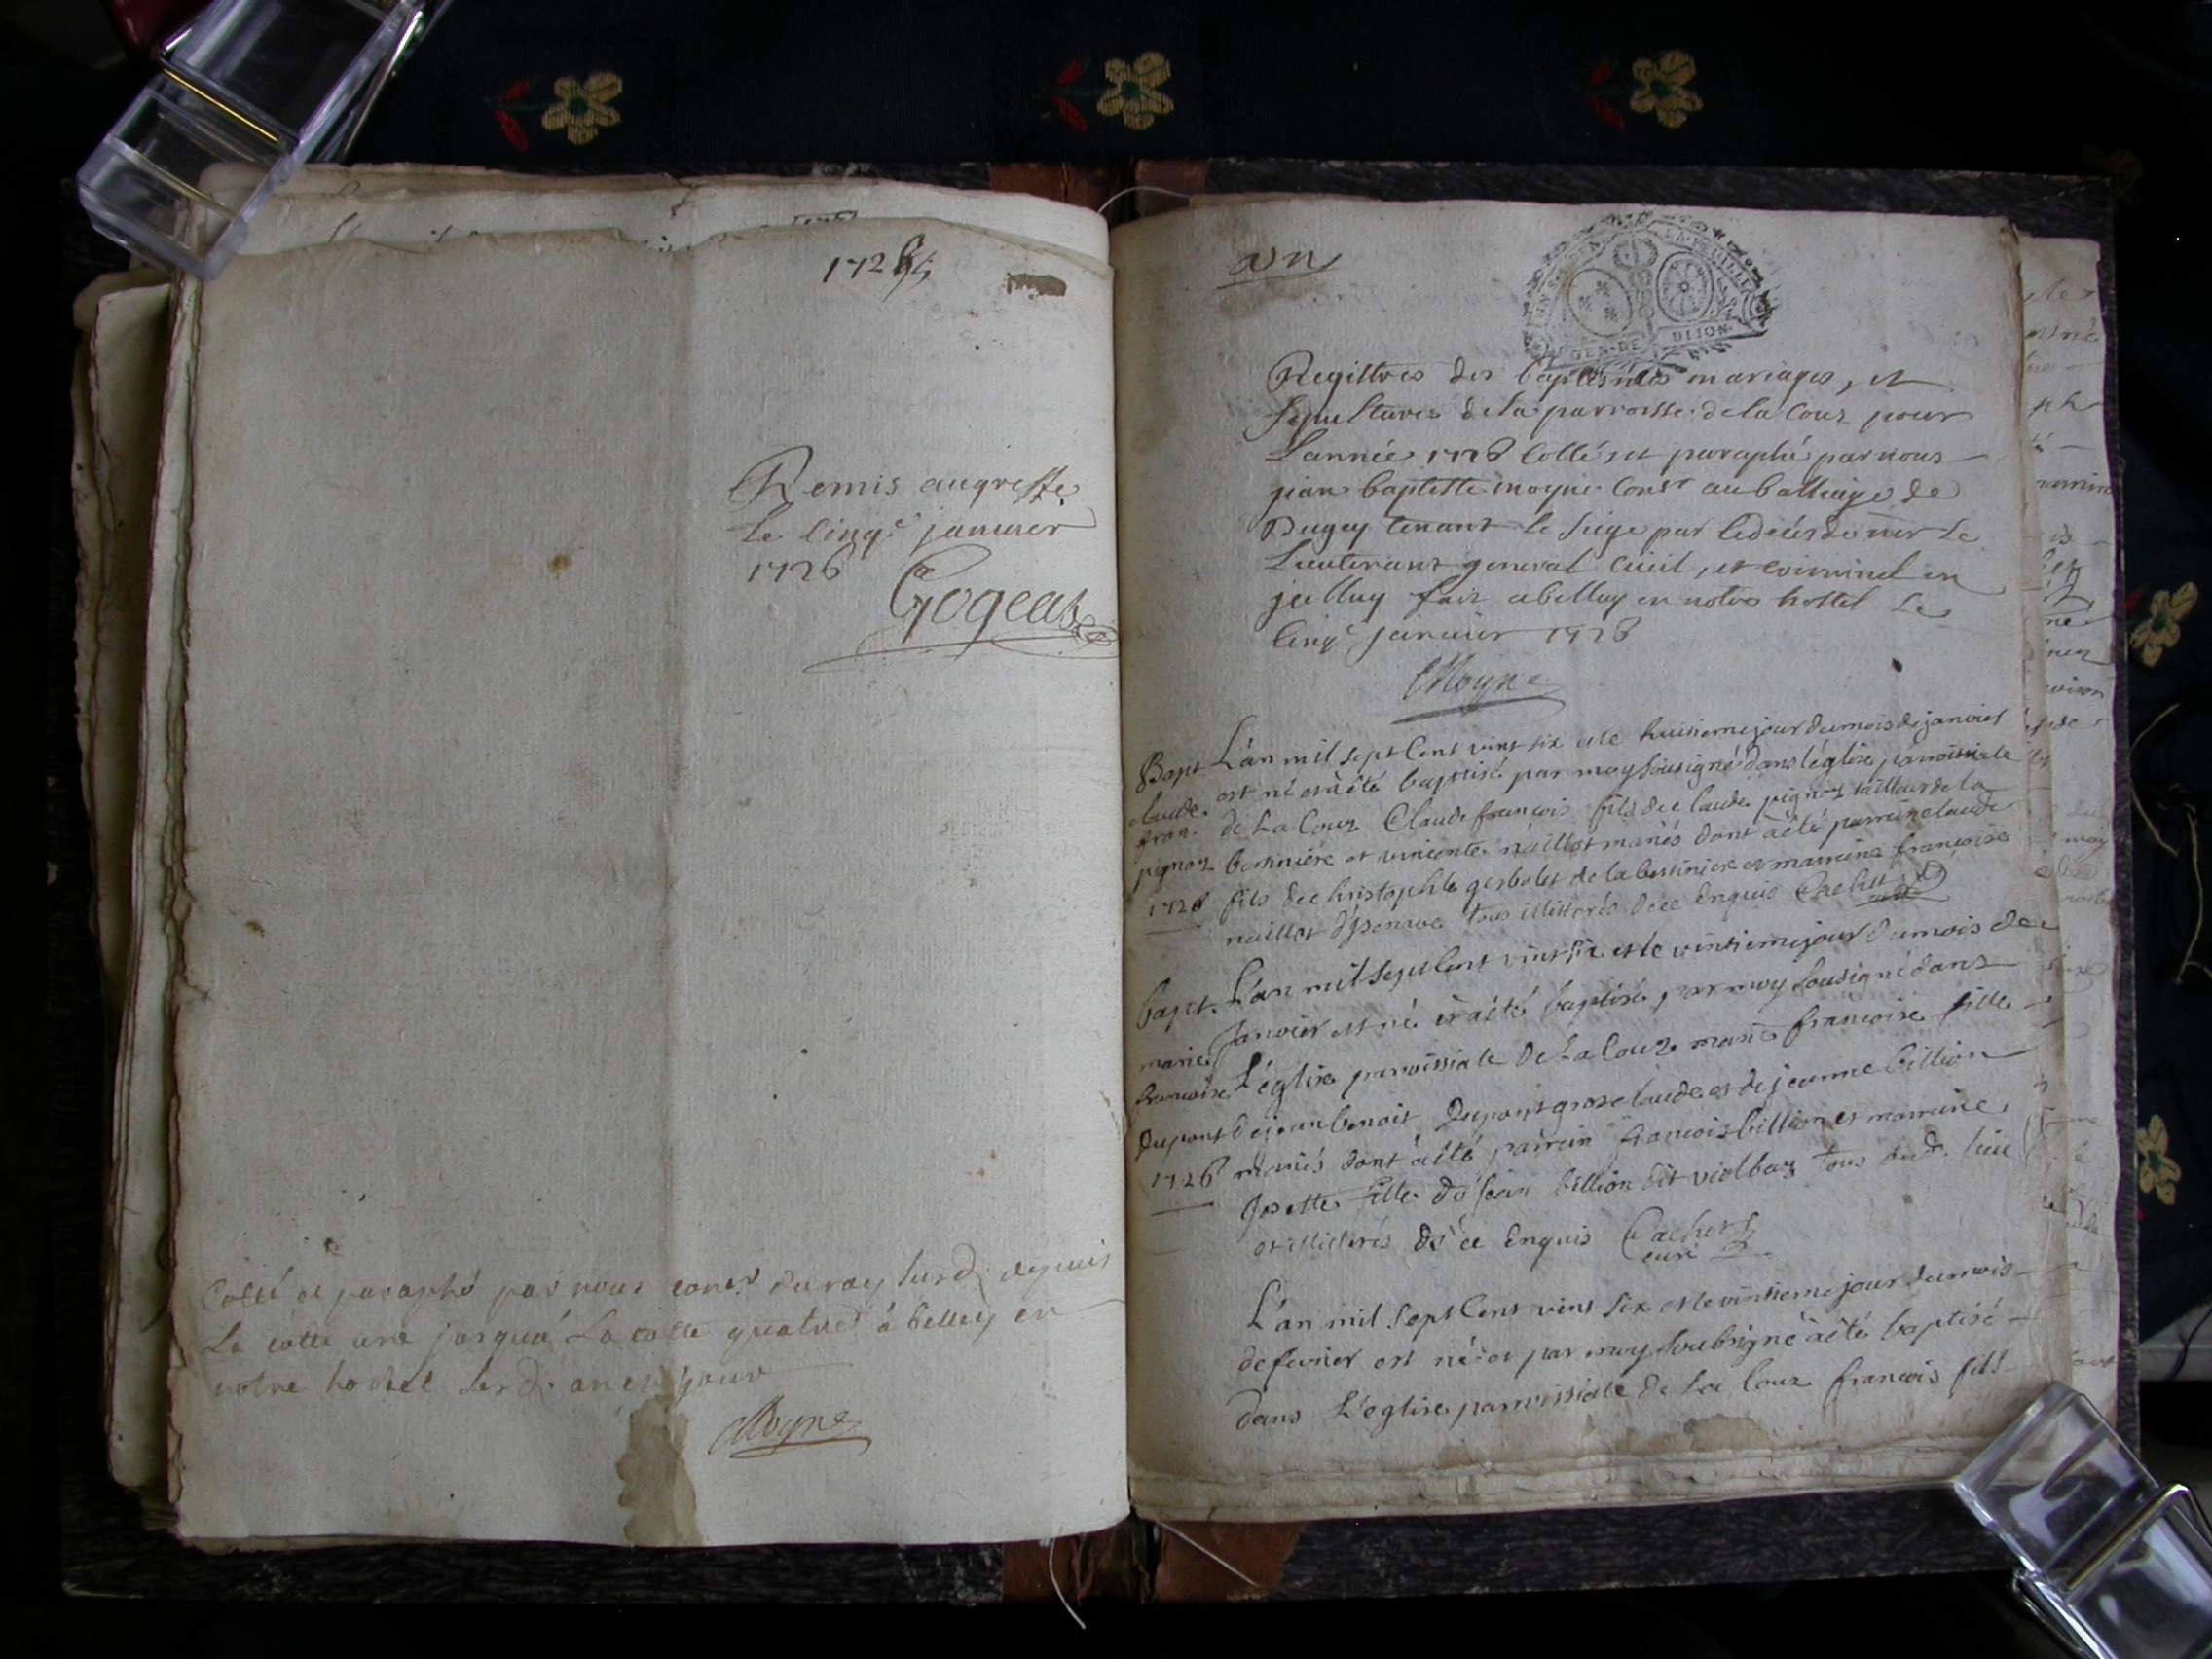 1725
Remis au greffe
Le cinq.e janvier
1726
Gogeat
Cotté et paraphé par nous cons.r du roy susd. depuis
La cotte une jusqua La cotte quatre à belley en
notre hostel lesd. an et jour
Moyne
un
GEN. DE DIJON
Registres des baptesmes mariages, et
sepultures de la parroisse de la Couz pour
L'année 1726 Cotté et paraphé par nous
jean baptiste moyne Cons.r au balliage de
Bugey tenant le siege par le deces de mr le
Lieutenant general Civil, et criminel en
jcelluy fait a belley en notre hostel Le
Cinq.e janvier 1726
Moyne
Bapt L'an mil sept Cent vint six et le huitieme jour du mois de janvier
claude est né et à été baptisé par moy sousigné dans l'église parroissiale
fran. de La Couz Claude francois fils de claude pignoz tailleur de la
pignoz bertiniere et vincente naillot mariés dont à été parrain claude
1726 fils de christophle gerbolet de la bertiniere et marraine francoise
naillot tous illitterés de ce Enquis Cachet curé
bapt. L'an mil Sept Cent vint six et le vintieme jour du mois de
marie Janvier est né et à été baptisé, par moy sousigné dans
francoise L'église parroissiale de La Couz marie francoise fille
dupont de jean benoit Dupont grosclaude et de jeanne billion
1726 mariés dont à été parrein francois billion et marraine
Josette fille de jean billion dit violbaz tous dud. lieu
et illiterés de ce Enquis Cachet
curé
L'an mil Sept Cent vint six et le vintieme jour du mois
de fevrier est né et par moy soubsigné à été baptisé
dans L'eglise parroissiale de La Couz francois fils